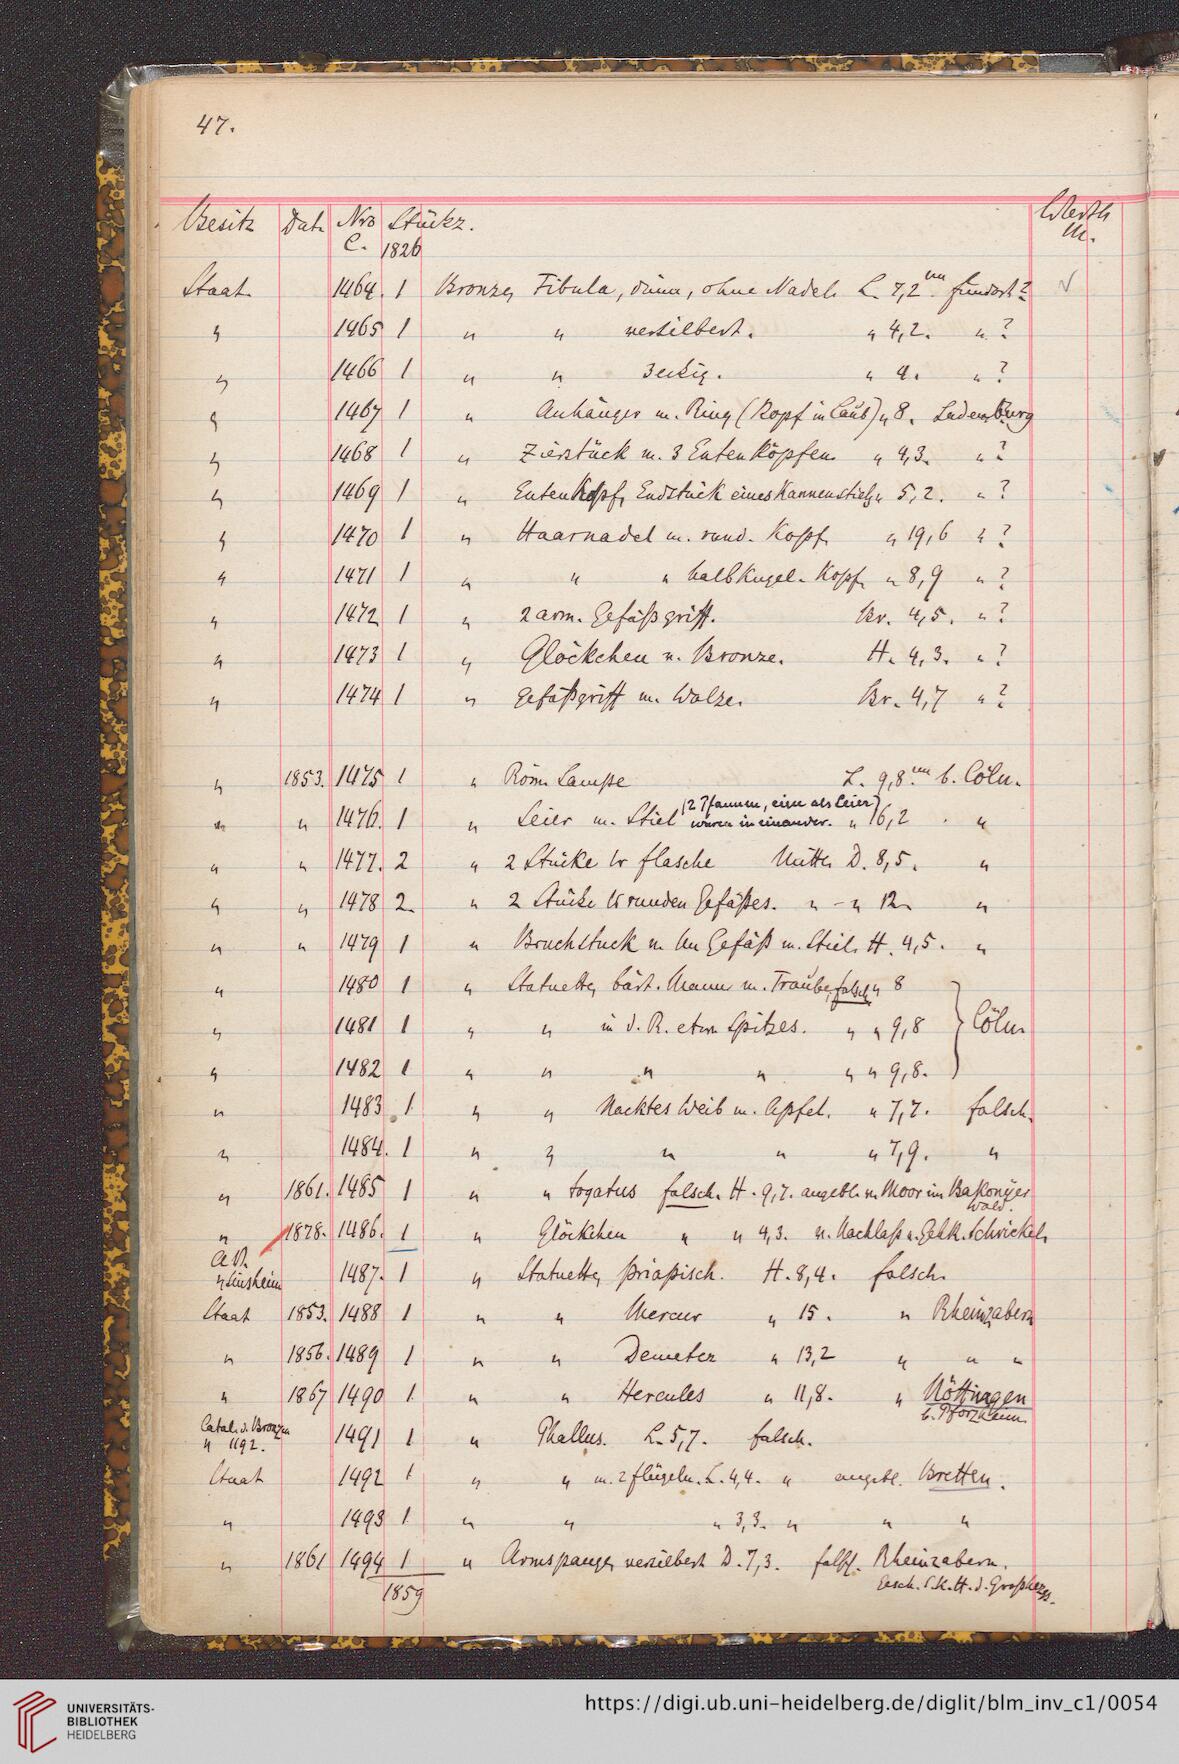 47.
Besitz Dat. Nro Stückz. Werth
C. 1826 M.
Staat. 1464. 1 Bronze, Fibula, dünn, ohne Nadel. L. 7,2 cm. Fundort?
" 1465 1 " " versilbert. " 4,2. " ?
" 1466 1 " " 3eckig. " 4. " ?
" 1467 1 " Anhänger m. Ring (Kopf in Laub) " 8. Ladenburg
" 1468 1 " Zierstück m. 3 Entenköpfen. " 4,3. " ?
" 1469 1 " Entenkopf, Endstück eines Kannenstiels " 5,2. " ?
" 1470 1 " Haarnadel m. rund. Kopf. " 19,6 " ?
" 1471 1 " " " halbkugel. Kopf " 8,9 " ?
" 1472 1 " 2 arm. Gefäßgriff. Br. 4,5. " ?
" 1473 1 " Glöckchen v. Bronze. H. 4,3. " ?
" 1474 1 " Gefäßgriff m. Walze. Br. 4,7 " ?
" 1853. 1475 1 " Röm. Lampe L. 9,8 cm b. Cöln.
(2 Pfannen, eine als Leier)
" " 1476. 1 " Leier m. Stiel waren in einander. " 16,2 . "
" " 1477. 2 " 2 Stücke flasche Mittl. D. 8,5. "
" " 1478 2. " 2 Stücke runden Gefäßes. " - " 12. "
" " 1479 1 " Bruchstück Gefäß m. Stiel. H. 4,5. "
" 1480 1 " Statuette, bärt. Mann m. Traube, falsch " 8
" 1481 1 " " in d. R. etw. Spitzes. " " 9,8 } Cöln.
" 1482 1 " " " " " " 9,8.
" 1483 1 " " Nacktes Weib m. Apfel. " 7,7. falsch.
" 1484. 1 " " " " " 7,9. "
" 1861. 1485 1 " " togatus falsch. H. 9,7. angebl. v. Moor im Bakonyer
Wald.
" 1878. 1486. 1 " Glöckchen " " 4,3. v. Nachlaß v. Schrickel.
A.V.
" Sinsheim 1487. 1 " Statuette, priapisch. H. 8,4. falsch.
Staat 1853. 1488 1 " " Mercur " 15. " Rheinzabern
" 1856. 1489 1 " " Demeter " 13,2 " " "
" 1867 1490 1 " " Hercules " 11,8. " Nöttingen
b. Pforzheim.
Catal. d. Bronzen
" 1192. 1491 1 " Phallus. L. 5,7. falsch.
Staat 1492 1 " " m. 2 Flügeln. L. 4,4. " angebl. Bretten.
" 1493 1 " " " 3,3. " " "
" 1861 1494 1 " Armspange, versilbert D. 7,3. falsch. Rheinzabern.
1859 Gesch. S.K.H. d. Großherzgs.
UNIVERSITÄTS-
BIBLIOTHEK
HEIDELBERG
https://digi.ub.uni-heidelberg.de/diglit/blm_inv_c1/0054